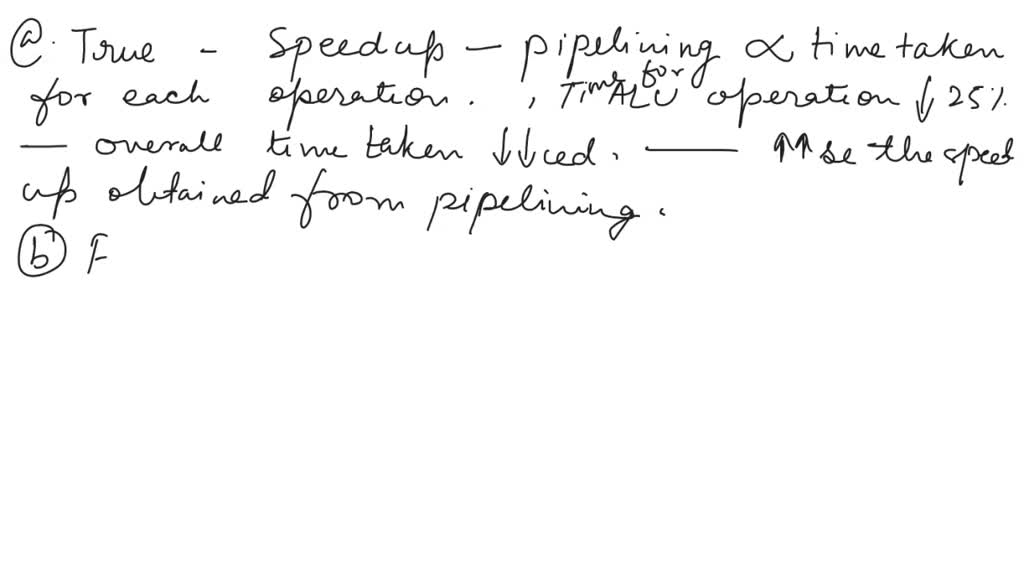 ⓐ. True - Speedup - pipelining ∝ time taken
for each operation. , Time for ALU operation ↓ 25%.
— overall time taken ↓↓ced. — ↑↑se the speed
up obtained from pipelining.
ⓑ F